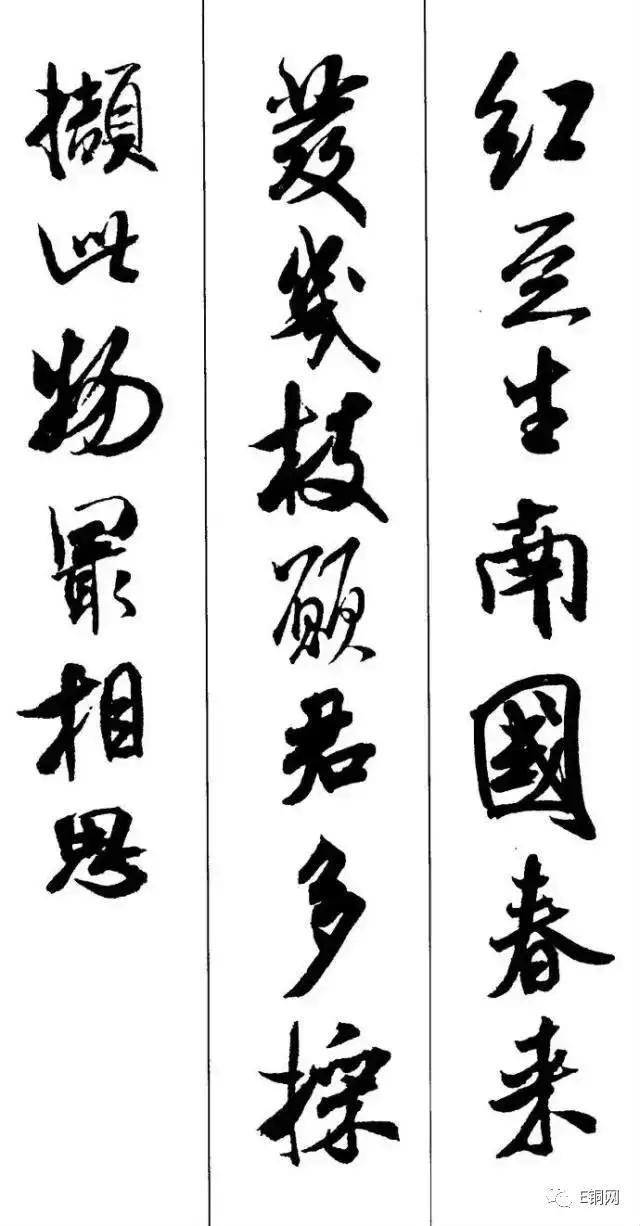 红豆生南國春来
發幾枝願君多採
擷此物最相思
E铜网